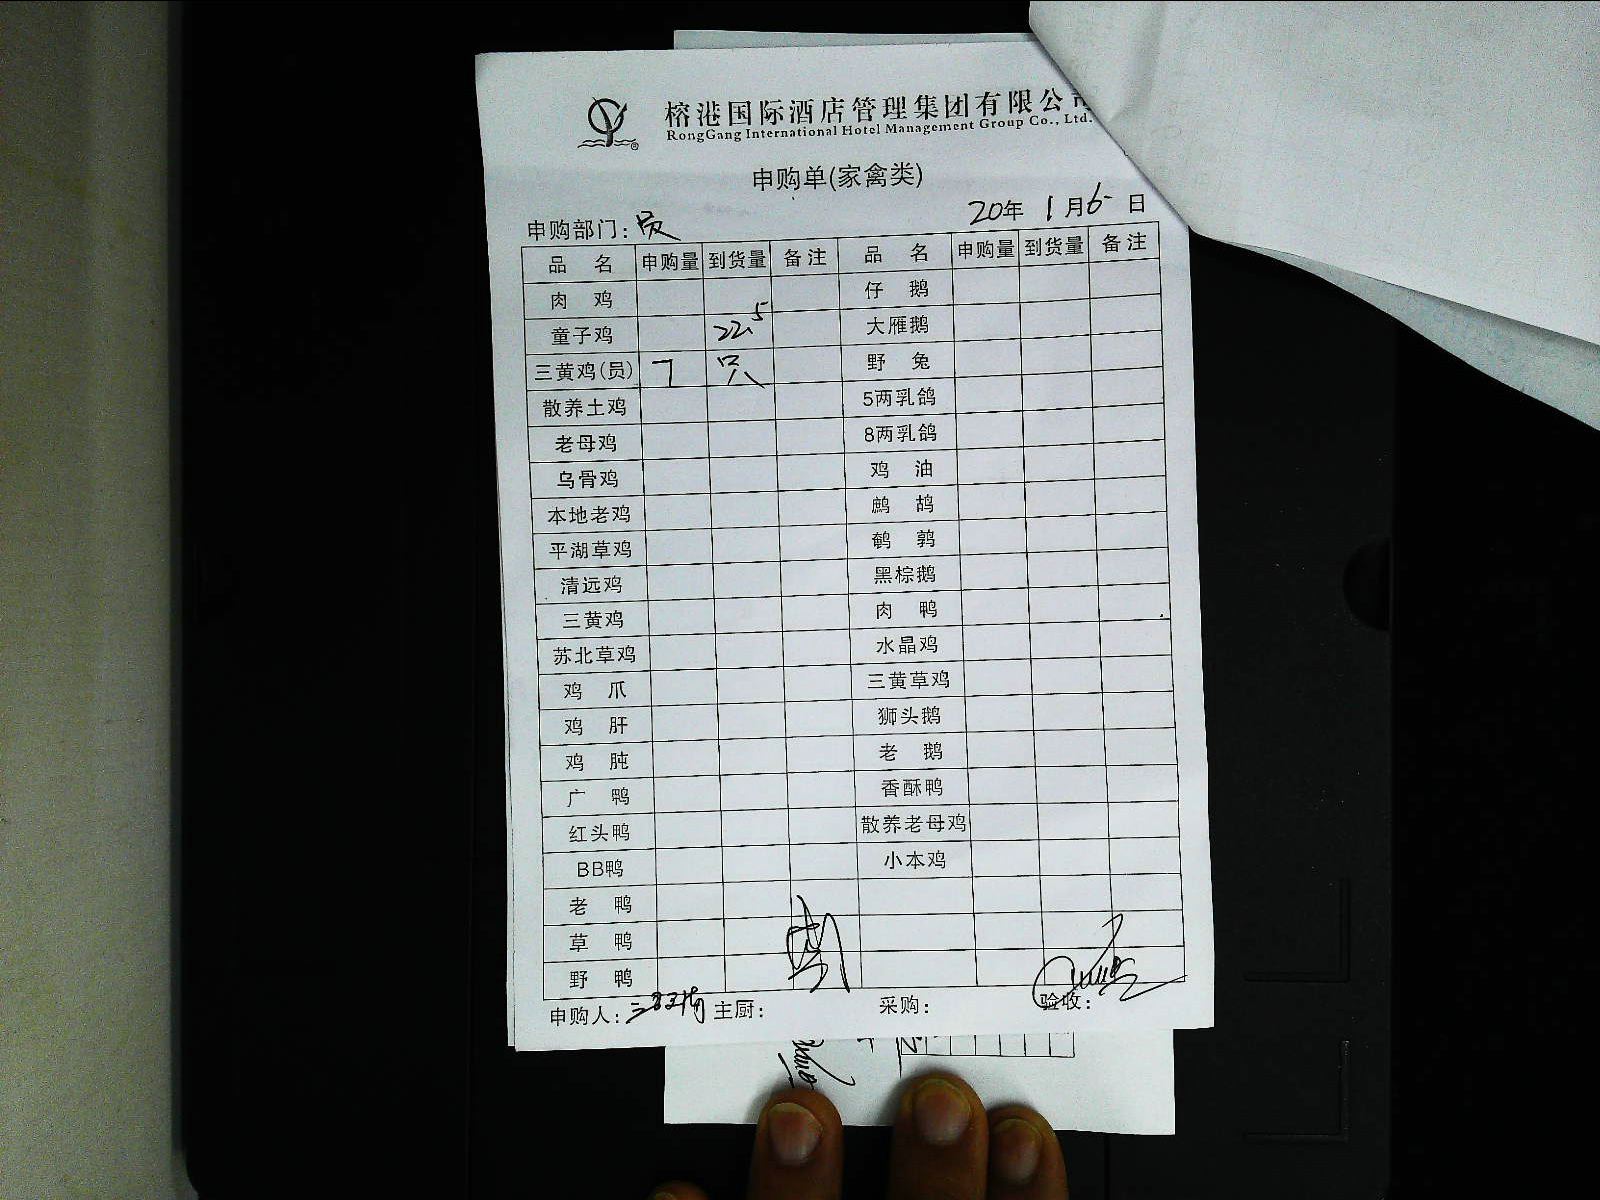 榕港国际酒店管理集团有限公司
RongGang International Hotel Management Group Co., Ltd.
申购单(家禽类)
申购部门: 员 20年 1月6日
品 名 申购量 到货量 备注 品 名 申购量 到货量 备注
肉 鸡 仔 鹅
童子鸡 22.5 大雁鹅
三黄鸡(员) 7 只 野 兔
散养土鸡 5两乳鸽
老母鸡 8两乳鸽
乌骨鸡 鸡 油
本地老鸡 鹧 鸪
平湖草鸡 鹌 鹑
清远鸡 黑棕鹅
三黄鸡 肉 鸭
苏北草鸡 水晶鸡
鸡 爪 三黄草鸡
鸡 肝 狮头鹅
鸡 肫 老 鹅
广 鸭 香酥鸭
红头鸭 散养老母鸡
BB鸭 小本鸡
老 鸭
草 鸭
野 鸭
申购人: 主厨: 采购: 验收: